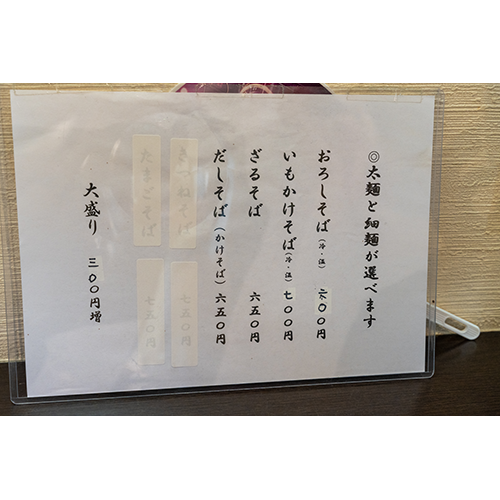 ◎太麺と細麺が選べます
おろしそば(冷・温) 七〇〇円
いもかけそば(冷・温) 七〇〇円
ざるそば 六五〇円
だしそば(かけそば) 六五〇円
きつねそば 七五〇円
たまごそば 七五〇円
大盛り 三〇〇円増